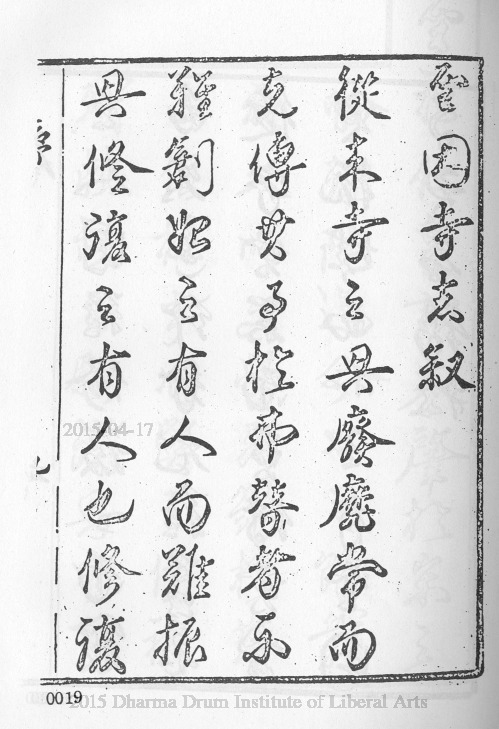 聖因寺志叙
從来寺之興廢靡常而
克傳其事於弗替者不
難創始之有人而難振
興修復之有人也修復
序
2015-04-17
0019
2015 Dharma Drum Institute of Liberal Arts